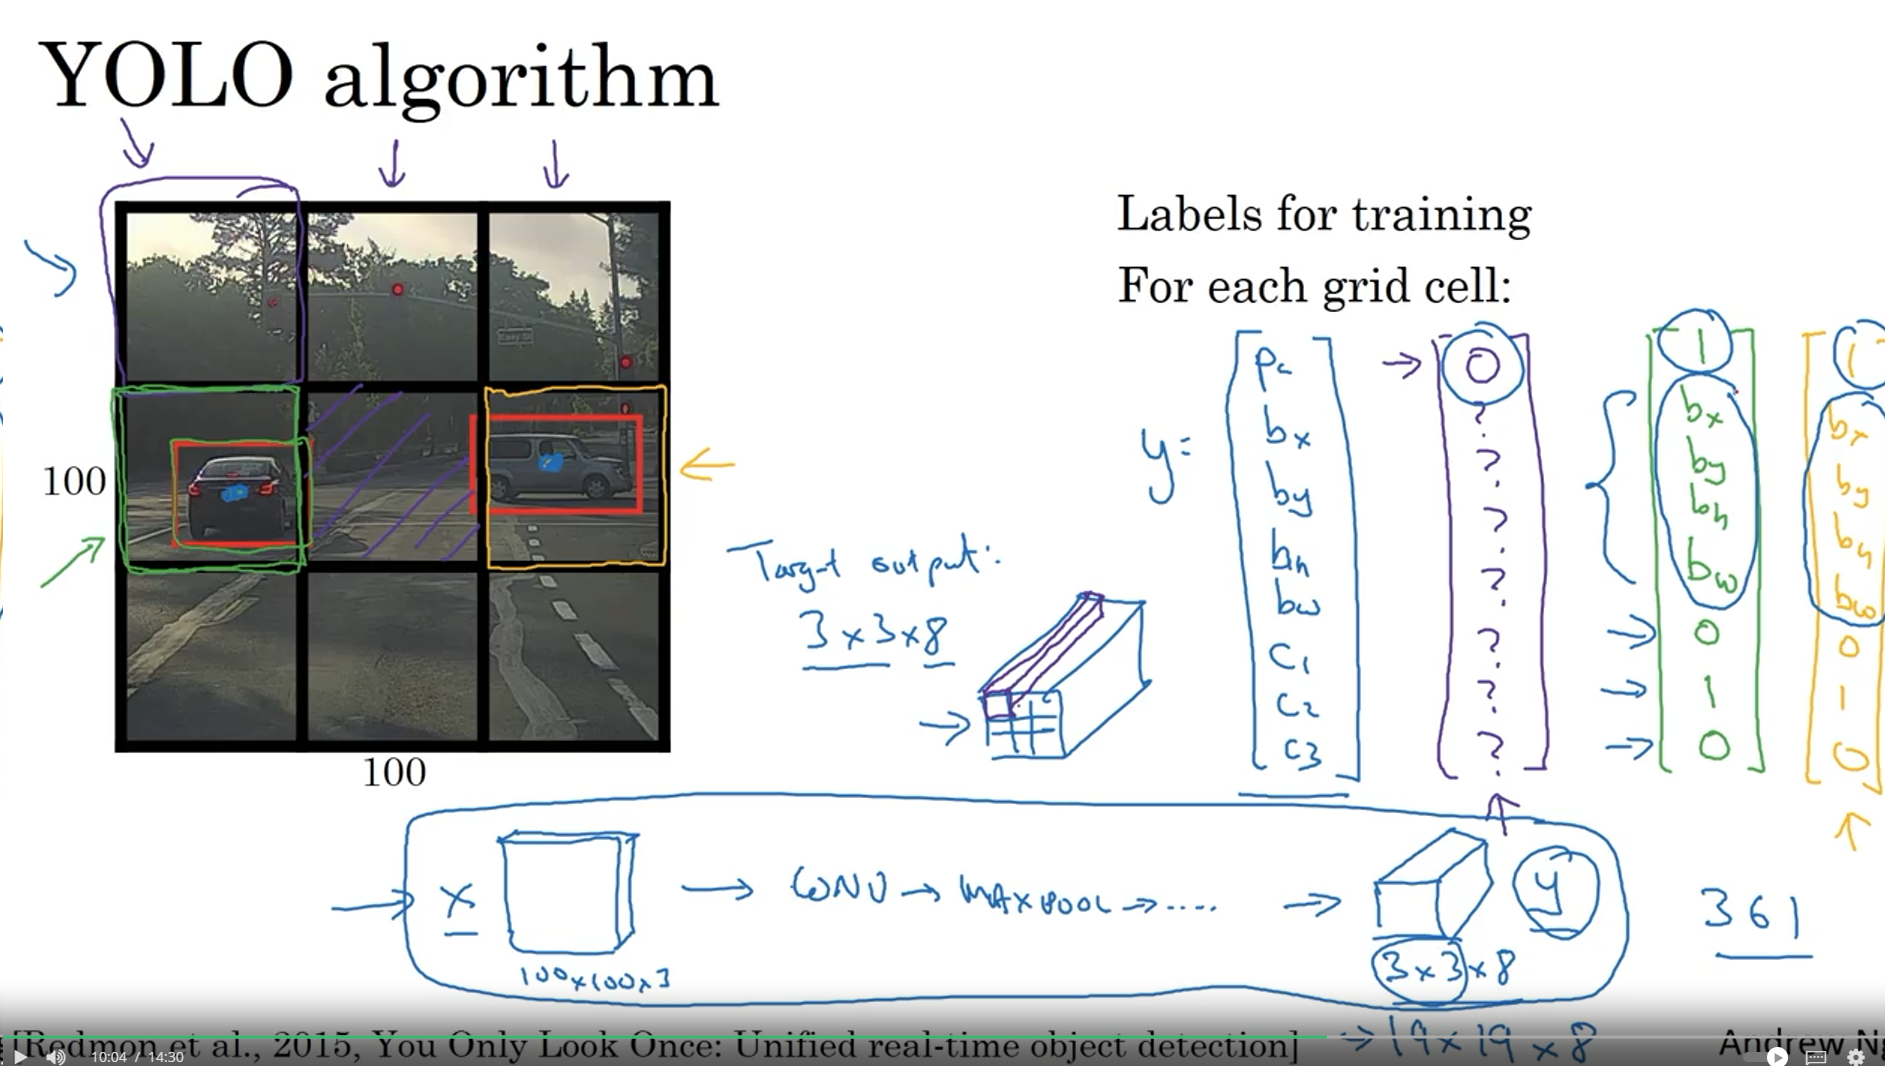 YOLO algorithm
Labels for training
For each grid cell:
100
100
Target output:
3 x 3 x 8
y =
pc
bx
by
bh
bw
c1
c2
c3
0
?
?
?
?
?
?
?
1
bx
by
bh
bw
0
1
0
1
bx
by
bh
bw
0
1
0
x
100x100x3
→ CONV → MAXPOOL → ....
→
y
3 x 3 x 8
361
→ 19 x 19 x 8
[Redmon et al., 2015, You Only Look Once: Unified real-time object detection]
Andrew Ng
10:04 / 14:30